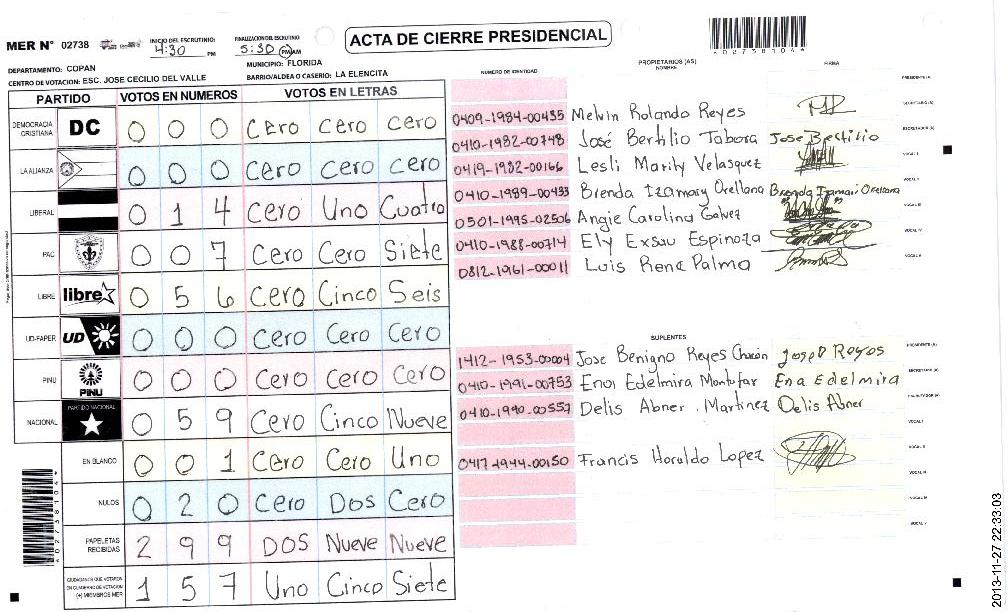 MER N° 02738
INICIO DEL ESCRUTINIO: 4:30 PM
FINALIZACION DEL ESCRUTINIO 5:30 PM/AM
ACTA DE CIERRE PRESIDENCIAL
4027381044
DEPARTAMENTO: COPAN
MUNICIPIO: FLORIDA
CENTRO DE VOTACION: ESC. JOSE CECILIO DEL VALLE
BARRIO/ALDEA O CASERIO: LA ELENCITA
PARTIDO VOTOS EN NUMEROS VOTOS EN LETRAS
DEMOCRACIA CRISTIANA DC 0 0 0 Cero Cero Cero
LA ALIANZA 0 0 0 Cero Cero Cero
LIBERAL 0 1 4 Cero Uno Cuatro
PAC 0 0 7 Cero Cero Siete
LIBRE libre 0 5 6 Cero Cinco Seis
UD-FAPER UD 0 0 0 Cero Cero Cero
PINU PINU 0 0 0 Cero Cero Cero
NACIONAL PARTIDO NACIONAL 0 5 9 Cero Cinco Nueve
EN BLANCO 0 0 1 Cero Cero Uno
NULOS 0 2 0 Cero Dos Cero
PAPELETAS RECIBIDAS 2 9 9 DOS Nueve Nueve
CIUDADANOS QUE VOTARON EN CUADERNO DE VOTACION (+) MIEMBROS MER 1 5 7 Uno Cinco Siete
NUMERO DE IDENTIDAD PROPIETARIOS (AS) NOMBRE FIRMA
PRESIDENTE (A)
0409-1984-00435 Melvin Rolando Reyes SECRETARIO (A)
0410-1982-00748 José Bertilio Tabora Jose Bertilio ESCRUTADOR (A)
0419-1982-00166 Lesli Marily Velasquez VOCAL I
0410-1989-00433 Brenda Izamary Orellana Brenda Izamari Orellana VOCAL II
0501-1995-02506 Angie Carolina Galvez VOCAL III
0410-1988-00714 Ely Exsau Espinoza VOCAL IV
0812-1961-00011 Luis Rene Palma VOCAL V
SUPLENTES
PRESIDENTE (A)
1412-1953-00004 Jose Benigno Reyes Chacón Jose D Reyes
SECRETARIO (A)
0410-1991-00753 Ena Edelmira Montufar Ena Edelmira
ESCRUTADOR (A)
0410-1990-00557 Delis Abner Martinez Delis Abner
VOCAL I
VOCAL II
0417-1944-00150 Francis Horaldo Lopez
VOCAL III
VOCAL IV
VOCAL V
4027381044
2013-11-27 22:33:03